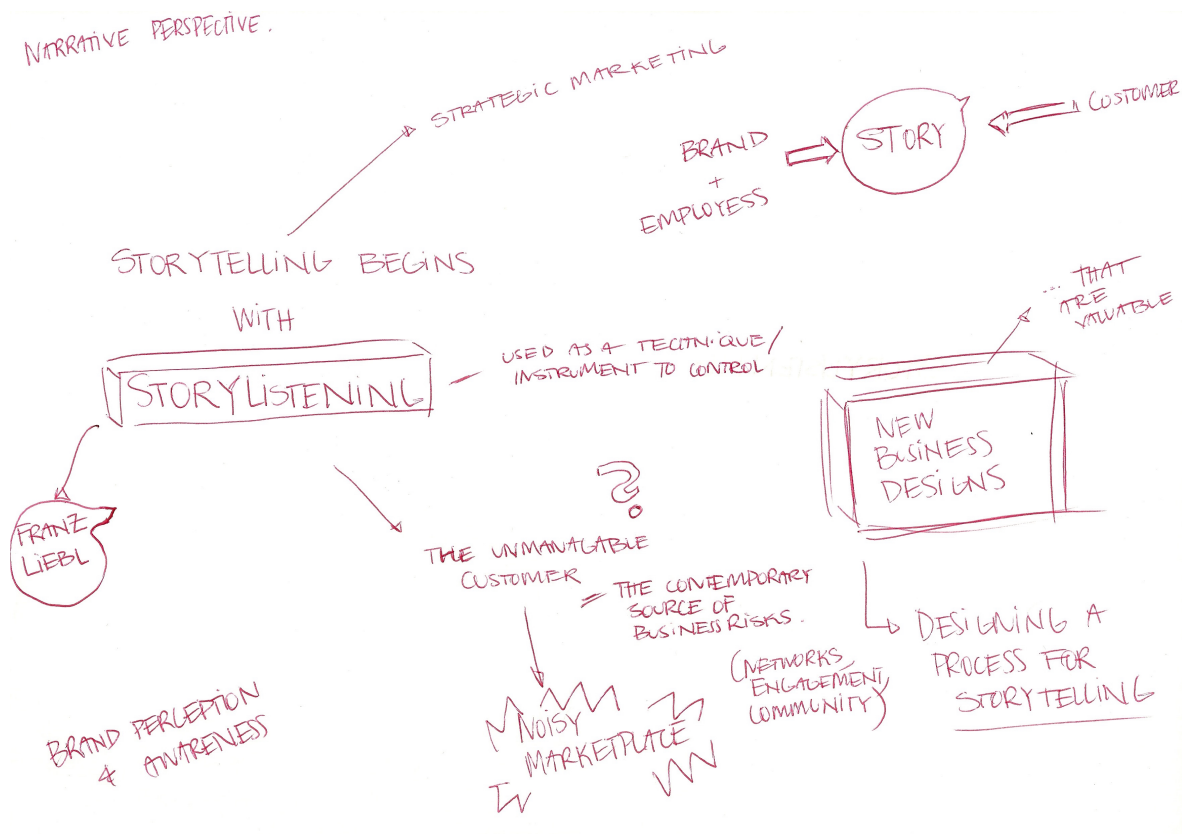 NARRATIVE PERSPECTIVE.
STRATEGIC MARKETING
BRAND
+
EMPLOYESS
STORY
CUSTOMER
STORYTELLING BEGINS
WITH
STORYLISTENING
USED AS A TECHNIQUE/
INSTRUMENT TO CONTROL
... THAT
ARE
VALUABLE
NEW
BUSINESS
DESIGNS
FRANZ
LIEBL
?
THE UNMANAGABLE
CUSTOMER
= THE CONTEMPORARY
SOURCE OF
BUSINESS RISKS.
(NETWORKS,
ENGAGEMENT,
COMMUNITY)
DESIGNING A
PROCESS FOR
STORYTELLING
NOISY
MARKETPLACE
BRAND PERCEPTION
& AWARENESS